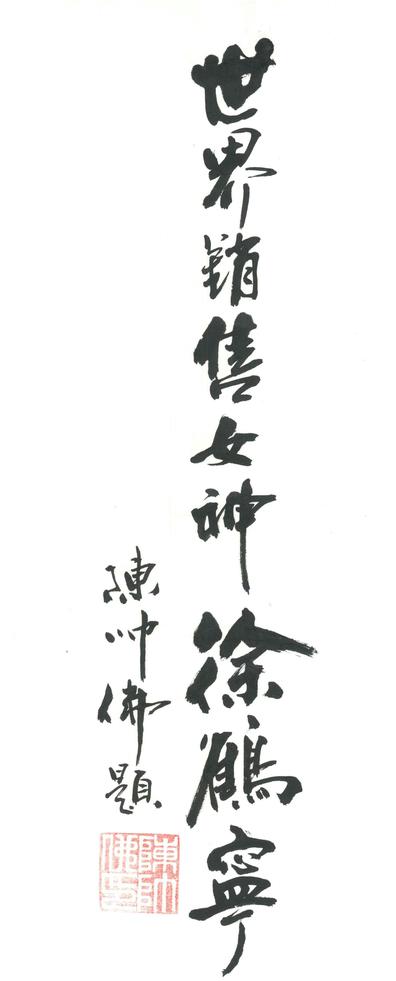 世界销售女神徐鶴寧
陳帅佛題
陳帅佛印